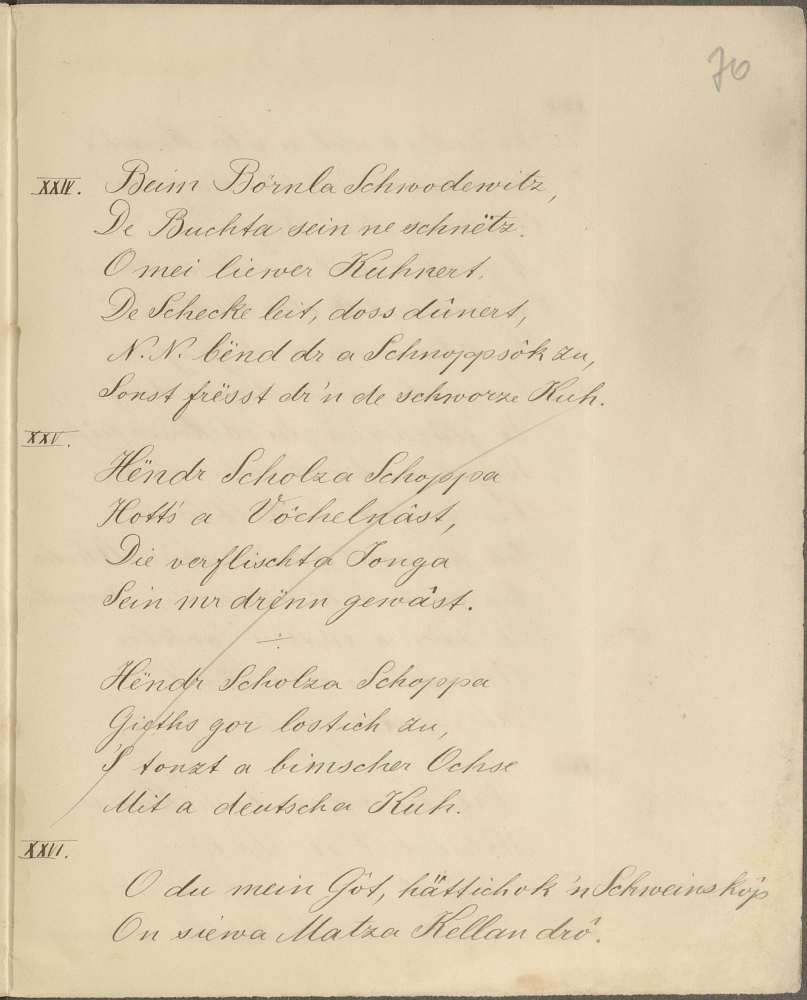 70
XXIV. Beim Börnla Schwodewitz,
De Buchta sein ne schnëtz.
O mei liewer Kuhnert,
De Schecke leit, doss dûnert,
N. N. bënd dr a Schnoppsôk zu,
Sonst frësst dr'n de schworze Kuh.
XXV.
Hëndr Scholza Schoppa
Hott's a Vôchelnâst,
Die verflischta Jonga
Sein mr drënn gewâst.
÷
Hëndr Scholza Schoppa
Gieths gor lostich zu,
'S tonzt a bimscher Ochse
Mit a deutscha Kuh.
XXVI.
O du mein Gôt, hättichok 'n Schweinskôp
On siewa Matza Kellan drô.